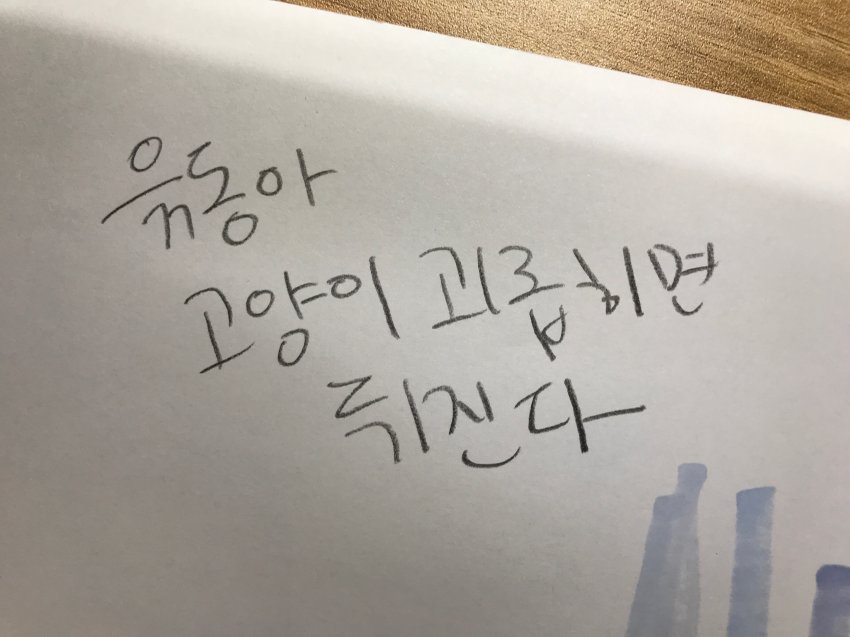 유동아
고양이 괴롭히면
뒤진다